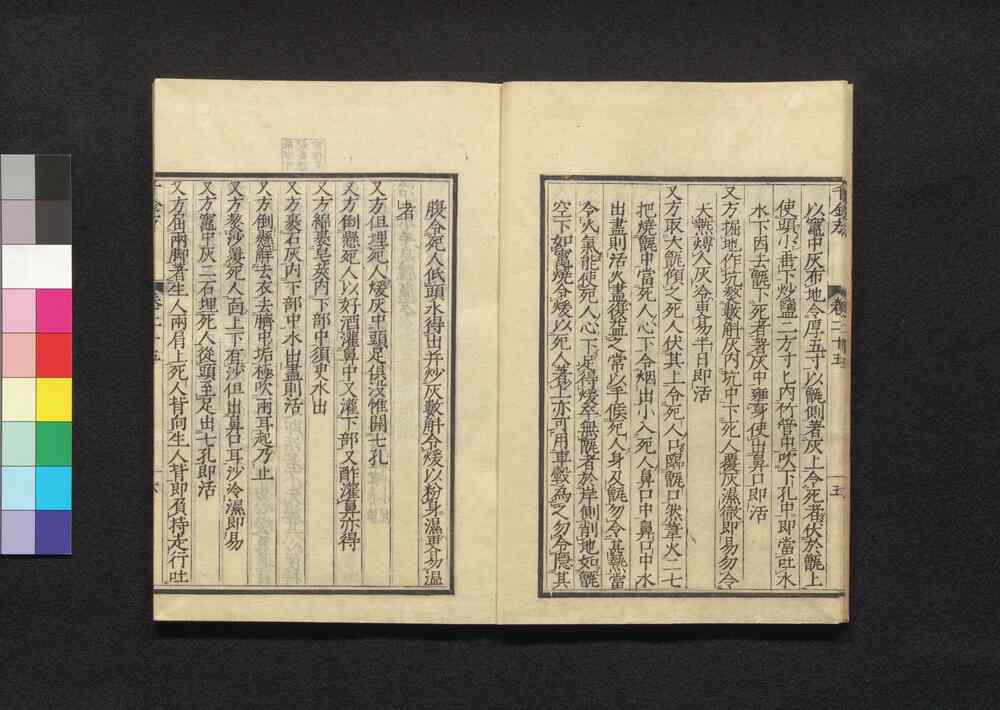 千金方 卷二十五 五
以竈中灰布地令厚五寸以甑側著灰上令死者伏於甑上
使頭小垂下炒鹽二方寸匕內竹管中吹下孔中即當吐水
水下因去甑下死者著灰中壅身使出鼻口即活
又方掘地作坑熬數斛灰內坑中下死人覆灰濕徹即易勿令
大熱煿人灰冷更易半日即活
又方取大甑傾之死人伏其上令死人口臨甑口然葦火二七
把燒甑中當死人心下令烟出小入死人鼻口中鼻口中水
出盡則活火盡復益之常以手候死人身及甑勿令甚熱當
令火氣能使死人心下足得煖卒無甑者於岸側削地如甑
空下如竈燒令煖以死人著上亦可用車轂為之勿令隱其
腹令死人低頭水得出并炒灰數斛令煖以粉身濕更易溫
者
又方但埋死人煖灰中頭足俱沒惟開七孔
又方倒懸死人以好酒灌鼻中又灌下部又酢灌鼻亦得
又方綿裹皂莢內下部中須臾水出
又方裹石灰內下部中水出盡則活
又方倒懸解去衣去臍中垢極吹兩耳起乃止
又方熬沙覆死人面上下有沙但出鼻口耳沙冷濕即易
又方竈中灰二石埋死人從頭至足出七孔即活
又方屈兩脚著生人兩肩上死人背向生人背即負持走行吐